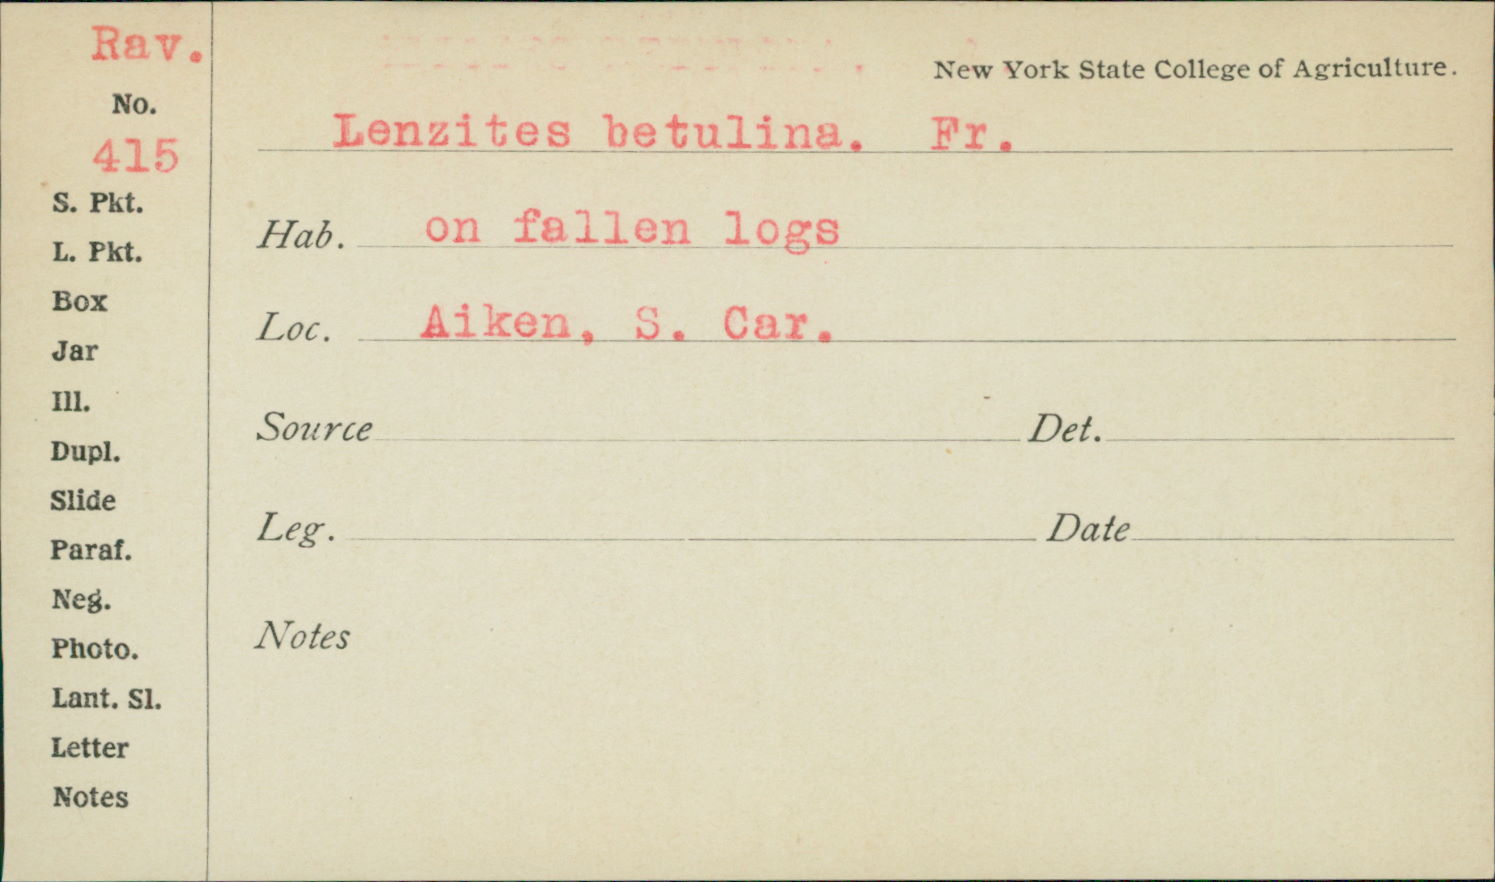 Rav.
New York State College of Agriculture.
No.
415
Lenzites betulina. Fr.
S. Pkt.
Hab. on fallen logs
L. Pkt.
Box
Loc. Aiken, S. Car.
Jar
Ill.
Source Det.
Dupl.
Slide
Leg. Date
Paraf.
Neg.
Notes
Photo.
Lant. Sl.
Letter
Notes